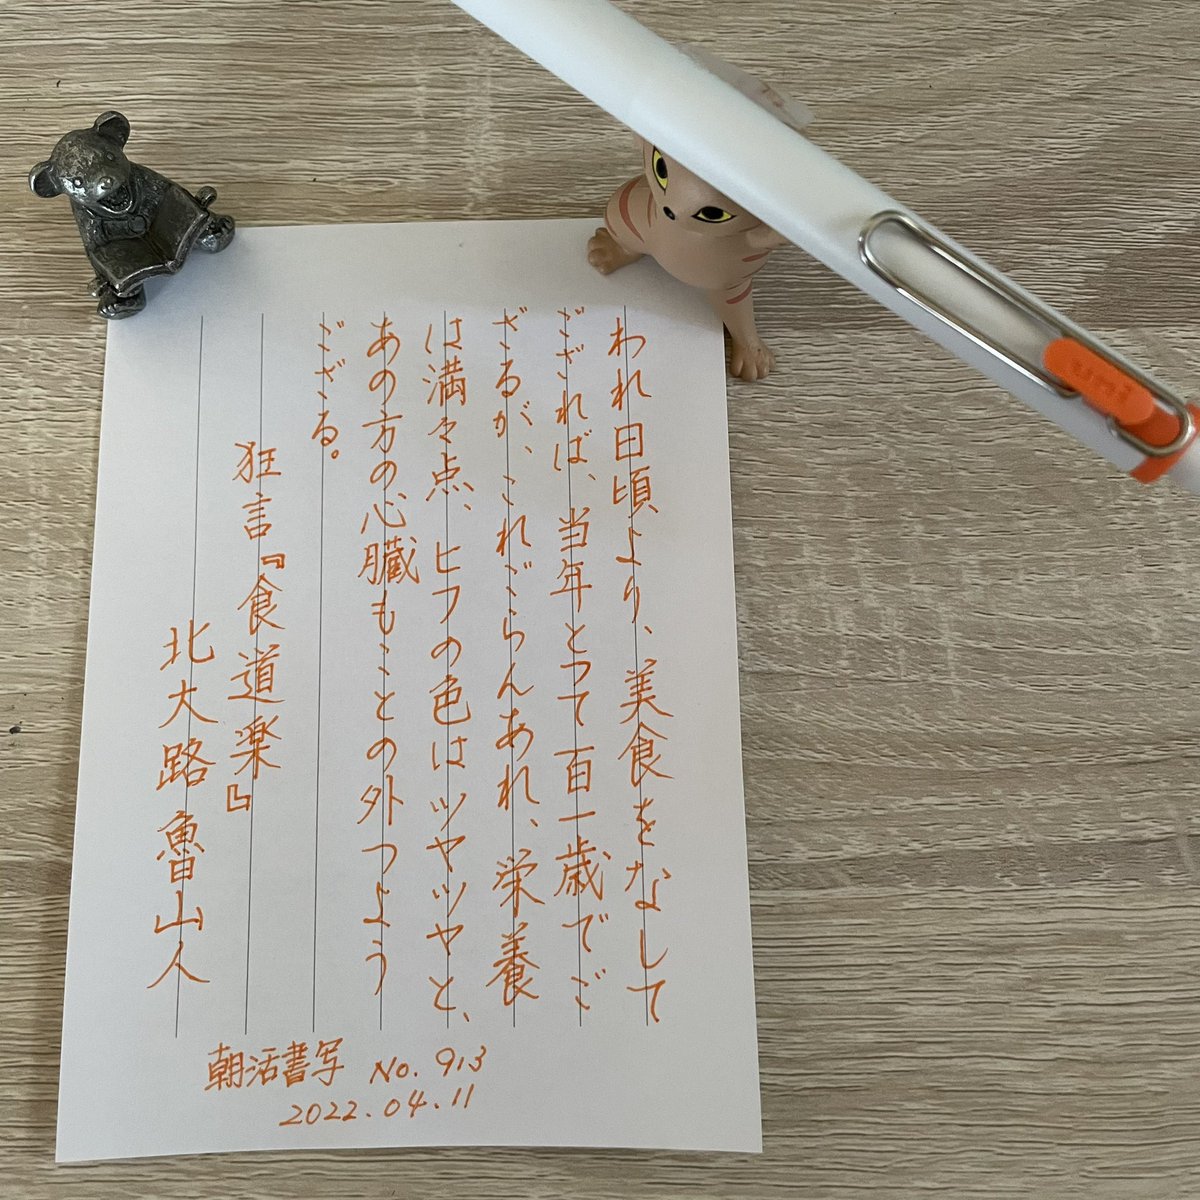 われ日頃より、美食をなして
ござれば、当年とって百一歳でご
ざるが、これごらんあれ、栄養
は満々点、ヒフの色はツヤツヤと、
あの方の心臓もことの外つよう
ござる。
狂言『食道楽』
北大路魯山人
朝活書写 No. 913
2022.04.11
uni